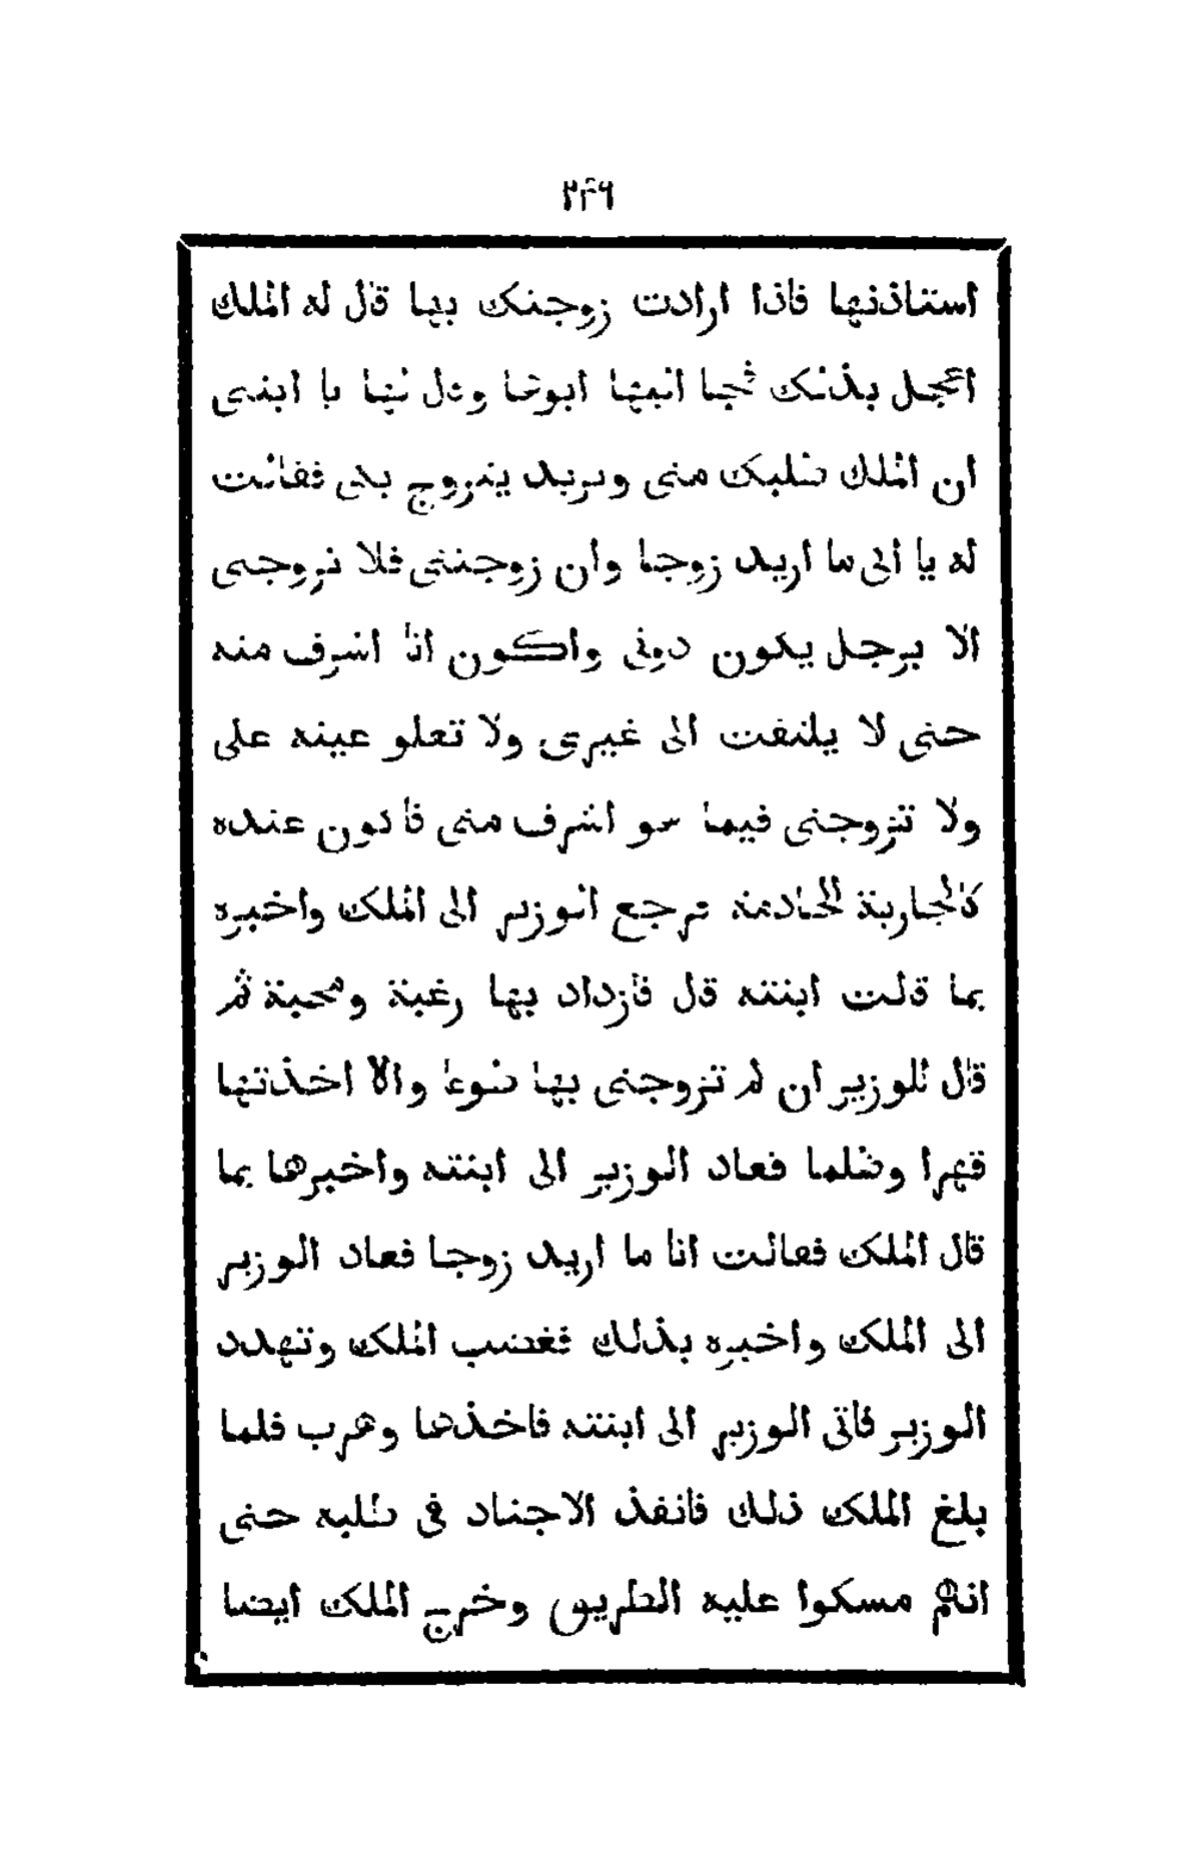 ٢٤٩
استاذنها فاذا ارادت زوجتك بها قال له الملك
اعجل بذلك فجا اليها ابوها وقال لها يا ابنتى
ان الملك طلبك منى ويريد يتزوج بك فقالت
له يا ابى ما اريد زوجا وان زوجتنى فلا تزوجنى
الا برجل يكون دونى واكون انا اشرف منه
حتى لا يلتفت الى غيرى ولا تعلو عينه على
ولا تزوجنى فيما هو اشرف منى فاكون عنده
كالجارية الخادمة فرجع الوزير الى الملك واخبره
بما قالت ابنته قال فازداد بها رغبة ومحبة ثم
قال للوزير ان لم تزوجنى بها طوعا والا اخذتها
قهرا وظلما فعاد الوزير الى ابنته واخبرها بما
قال الملك فقالت انا ما اريد زوجا فعاد الوزير
الى الملك واخبره بذلك فغضب الملك وتهدد
الوزير فاتى الوزير الى ابنته فاخذها وهرب فلما
بلغ الملك ذلك فانفذ الاجناد فى طلبه حتى
انهم مسكوا عليه الطريق وخرج الملك ايضا